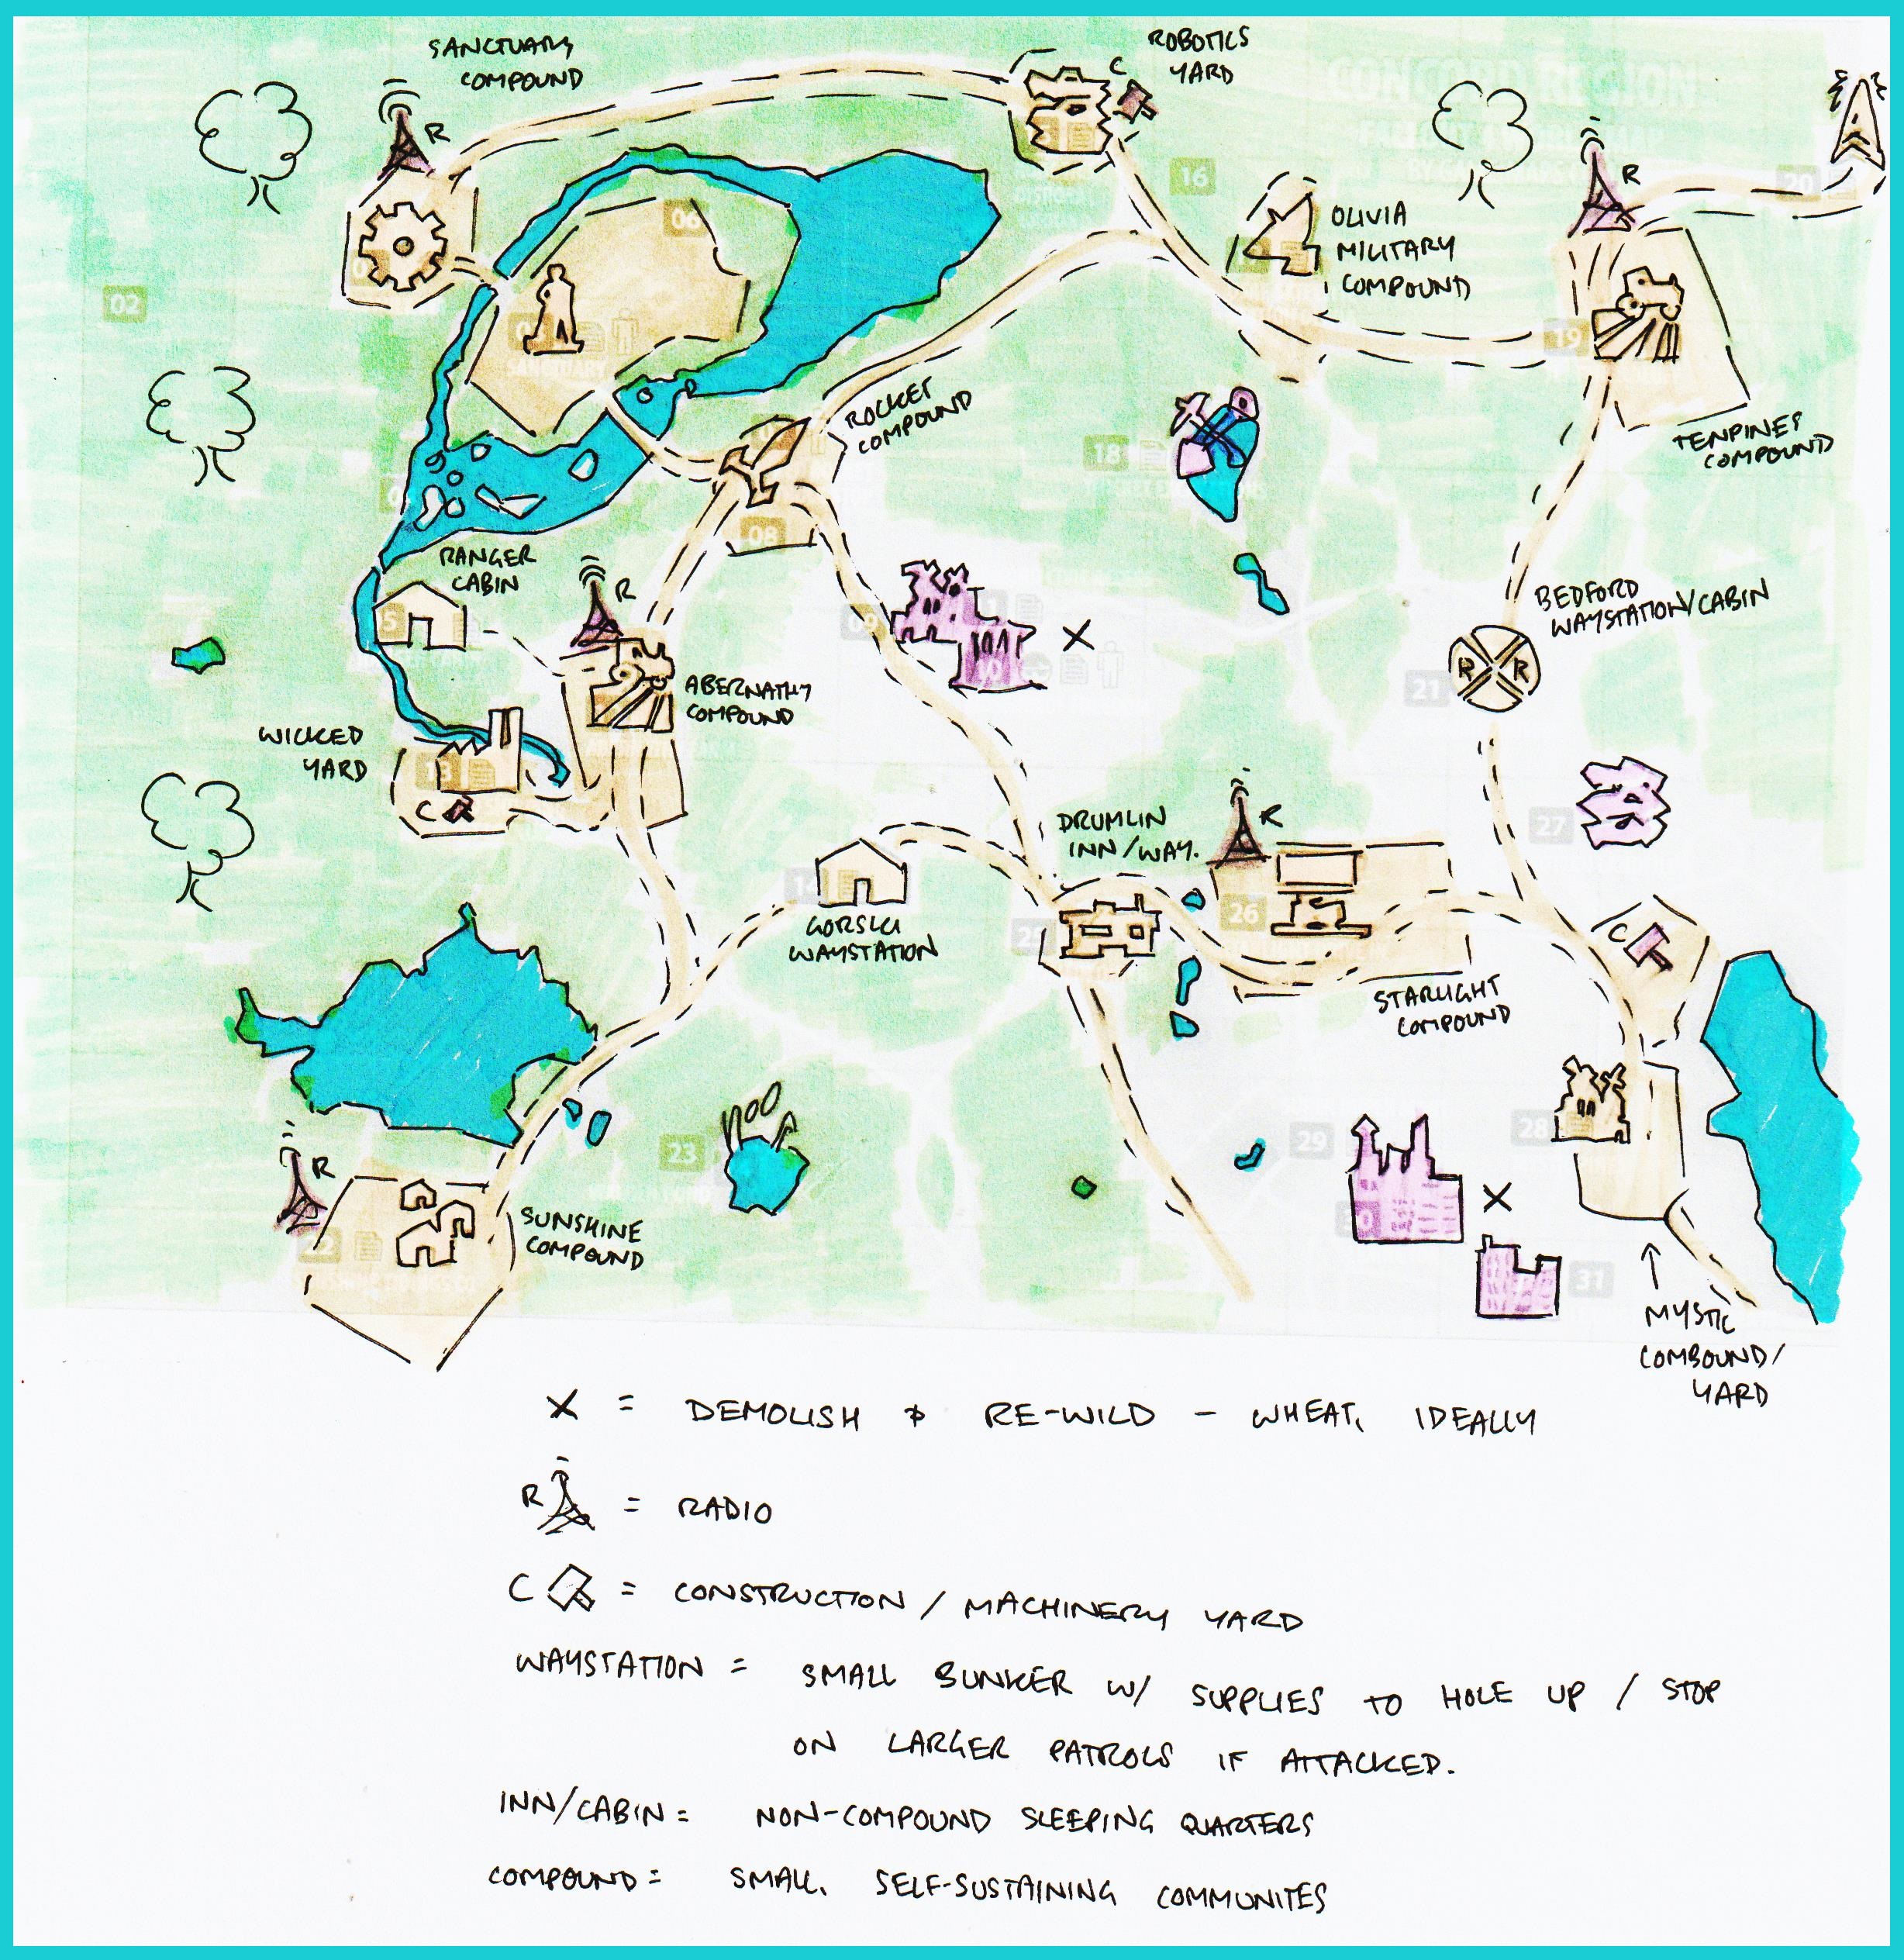 SANCTUARY
COMPOUND
R
ROBOTICS
YARD
C
CONCORD REGION
16
R
20
OLIVIA
MILITARY
COMPOUND
06
02
SANCTUARY
19
TENPINES
COMPOUND
ROCKET
COMPOUND
18
08
RANGER
CABIN
R
BEDFORD
WAYSTATION/CABIN
R R
09
10
X
21
ABERNATHY
COMPOUND
WICKED
YARD
13
C
DRUMLIN
INN/WAY.
R
27
14
GORSKI
WAYSTATION
25
26
C
STARLIGHT
COMPOUND
R
23
29
28
X
22
SUNSHINE
COMPOUND
31
MYSTIC
COMBOUND/
YARD
X = DEMOLISH & RE-WILD - WHEAT, IDEALLY
R = RADIO
C = CONSTRUCTION / MACHINERY YARD
WAYSTATION = SMALL BUNKER W/ SUPPLIES TO HOLE UP / STOP
ON LARGER PATROLS IF ATTACKED.
INN/CABIN = NON-COMPOUND SLEEPING QUARTERS
COMPOUND = SMALL, SELF-SUSTAINING COMMUNITES